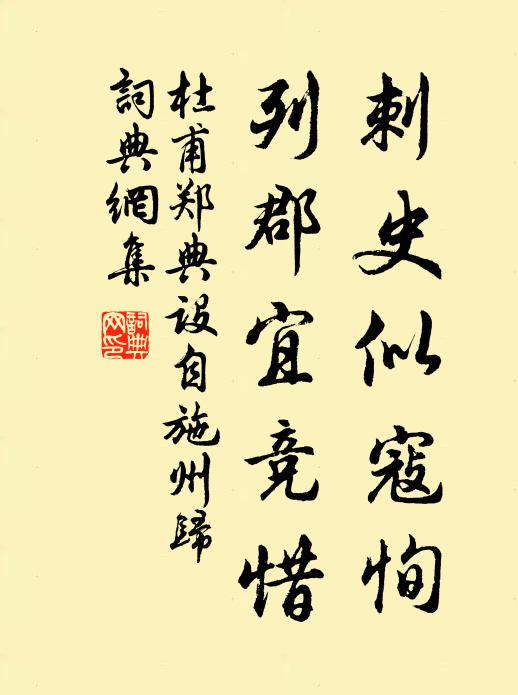 刺史似寇恂
列郡宜竞惜
杜甫郑典设自施州歸
詞典網集
詞典網印